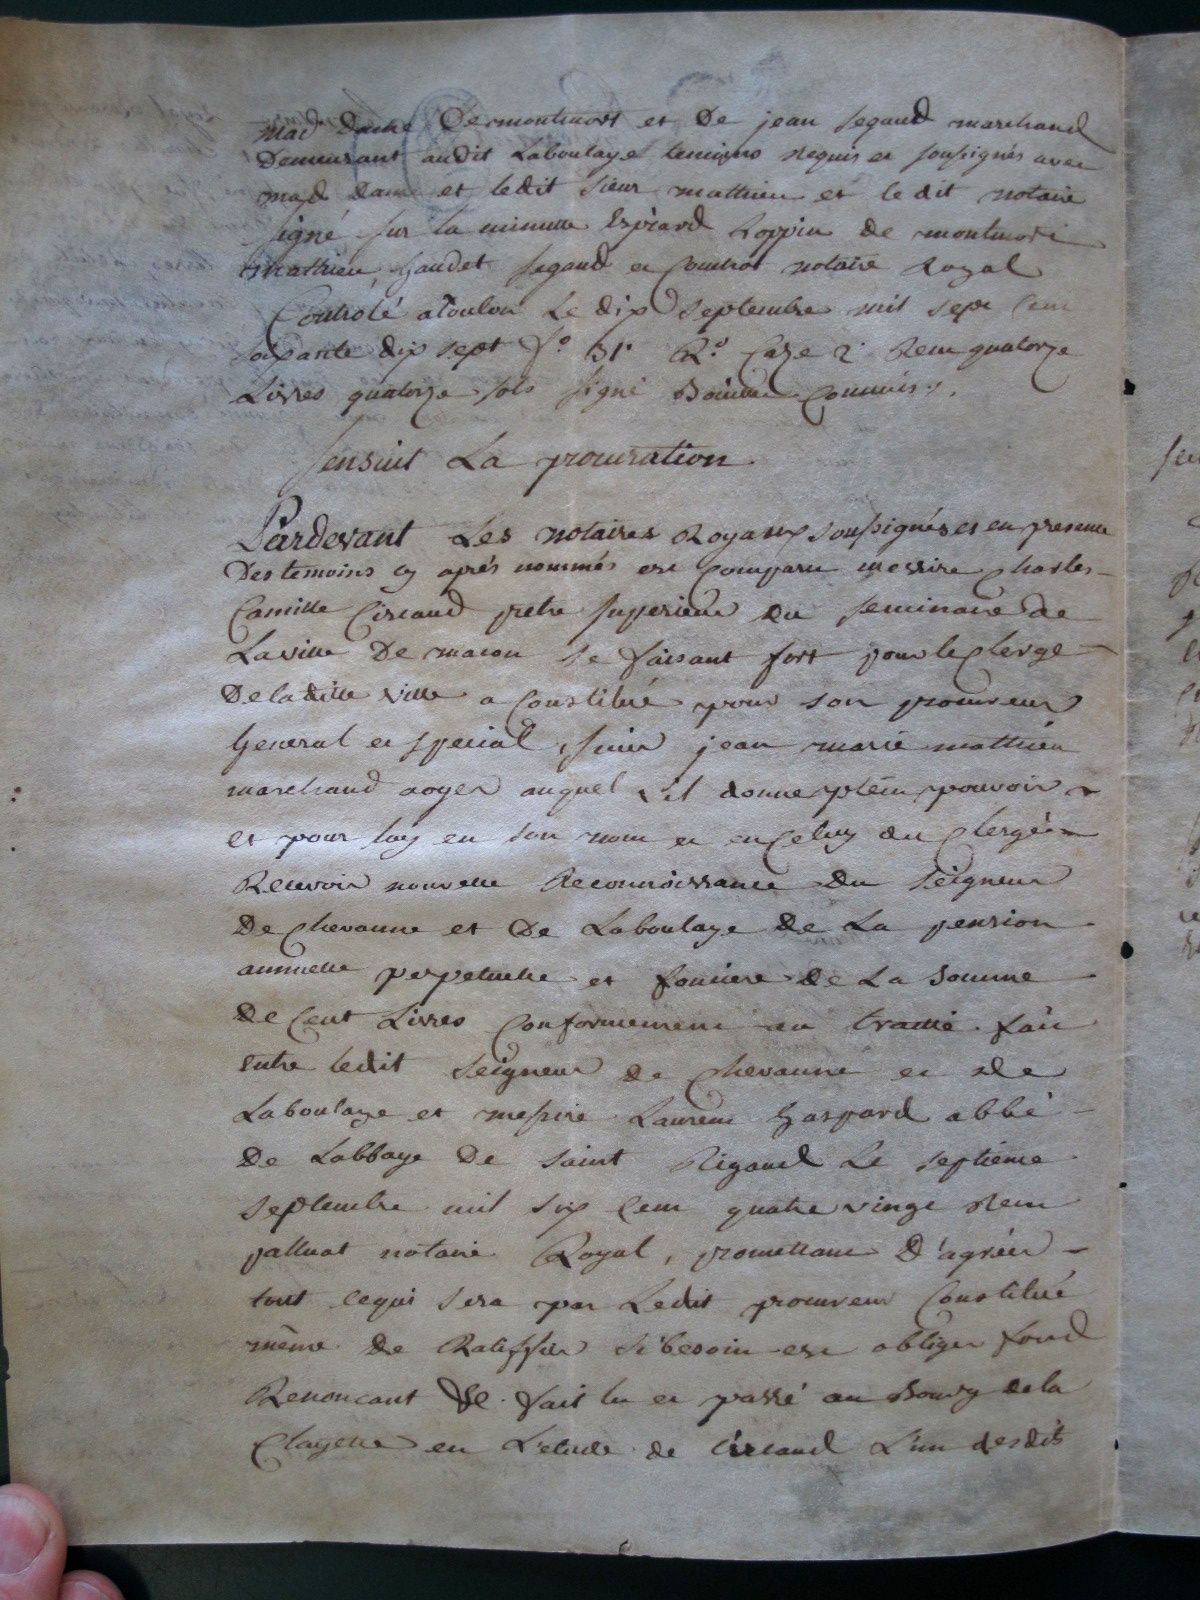 mad dame De montmort et De jean Segaud marchand
Demeurant audit Laboulaye temoins Requis et soussignés avec
mad dame et ledit sieur mathieu et le dit notaire
signé sur la minutte Espiard Coppin de montmort
mathieu Gaudet Segaud et notaire Royal
Controlé a Toulon Le dix septembre mil sept Cent
soixante dix sept fo. 51. Ro. Caze 2. Recu quatorze
Livres quatorze sols signé Commis.
sensuit La procuration
Pardevant Les notaires Royaux soussignés et en presence
Des temoins cy après nommés est Comparu messire Charles
Camille Circaud pretre superieur du seminaire de
La ville De macon se faisant fort pour le Clergé
De la ditte ville a Constitué pour son procureur
General et special, sieur jean marie mathieu
marchand aoyer auquel il donne plein pouvoir
et pour luy en son nom et en Celuy du Clergé
Recevoir nouvelle Reconnoissance Du seigneur
De Chevanne et De Laboulaye de La pension
annuelle perpetuelle et fonciere de La somme
de Cent Livres Conformement au traitté fait
entre ledit seigneur de Chevanne et de
Laboulaye et messire Laurent Gaspard abbé
De Labbaye De saint Rigaud Le septieme
septembre mil six Cent quatre vingt Recu
palluat notaire Royal, promettant D'agréer
tout cequi sera par Ledit procureur Constitué
même de Ratiffier si besoin est obliger fond
Renoncant &c. fait lu et passé au Bourg de la
Clayette en L'etude de Circaud L'un desdits